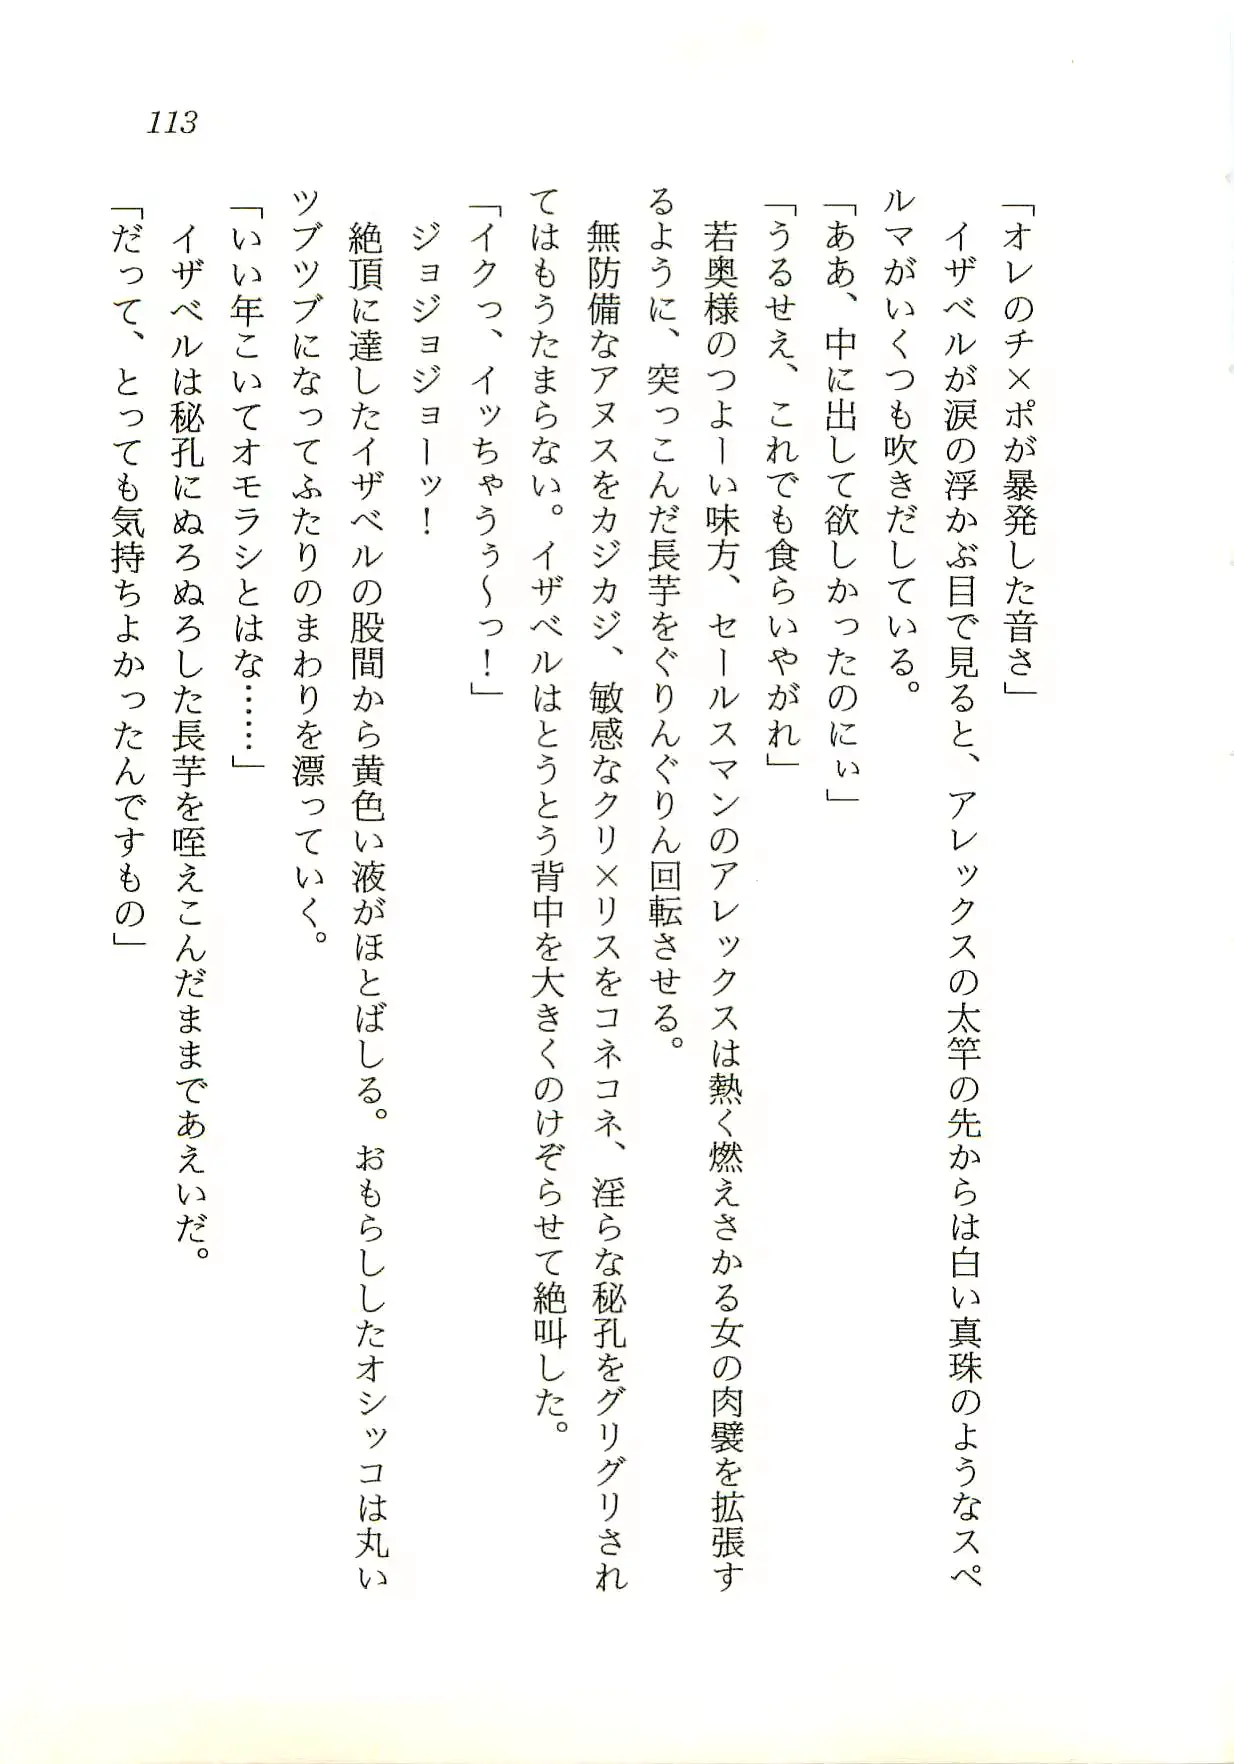 113
「オレのチ×ポが暴発した音さ」
　イザベルが涙の浮かぶ目で見ると、アレックスの太竿の先からは白い真珠のようなスペ
ルマがいくつも吹きだしている。
「ああ、中に出して欲しかったのにぃ」
「うるせえ、これでも食らいやがれ」
　若奥様のつよーい味方、セールスマンのアレックスは熱く燃えさかる女の肉襞を拡張す
るように、突っこんだ長芋をぐりんぐりん回転させる。
　無防備なアヌスをカジカジ、敏感なクリ×リスをコネコネ、淫らな秘孔をグリグリされ
てはもうたまらない。イザベルはとうとう背中を大きくのけぞらせて絶叫した。
「イクっ、イッちゃうぅ～っ！」
　ジョジョジョーッ！
　絶頂に達したイザベルの股間から黄色い液がほとばしる。おもらししたオシッコは丸い
ツブツブになってふたりのまわりを漂っていく。
「いい年こいてオモラシとはな……」
　イザベルは秘孔にぬろぬろした長芋を咥えこんだままであえいだ。
「だって、とっても気持ちよかったんですもの」